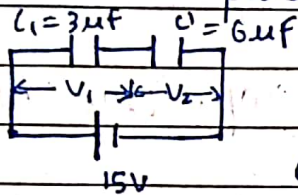 C₁ = 3μF C' = 6μF
V₁ V₂
15V